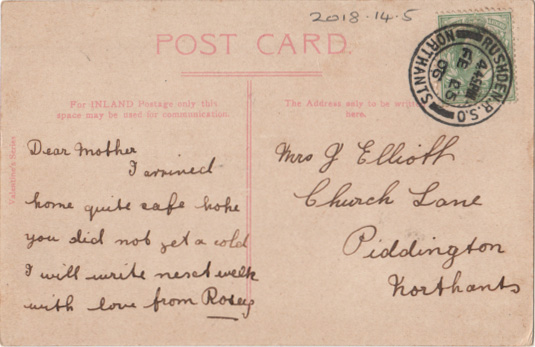 2018.14.5
POST CARD.
RUSHDEN.R.S.O
NORTHANTS
FE 25
06
For INLAND Postage only this
space may be used for communication.
The Address only to be written
here.
Valentine's Series
Dear Mother
I arrived
home quite safe hope
you did not get a cold
I will write next week
with love from Rosey
Mrs J Elliott
Church Lane
Piddington
Northants